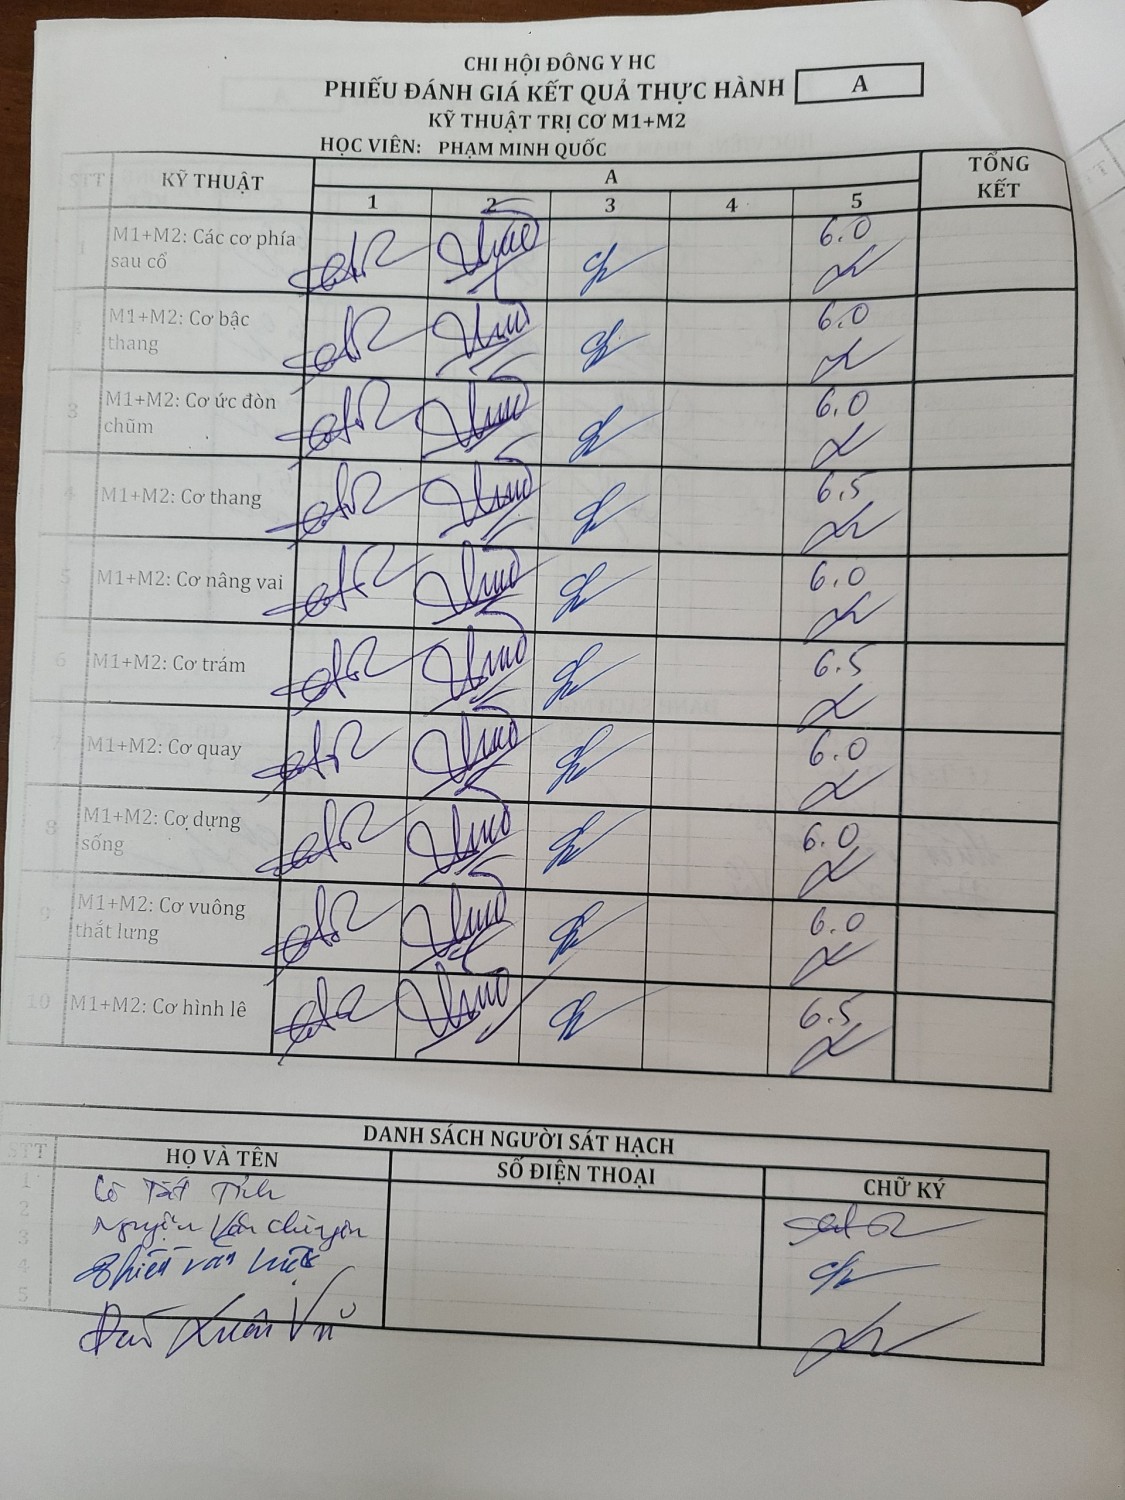 CHI HỘI ĐÔNG Y HC
PHIẾU ĐÁNH GIÁ KẾT QUẢ THỰC HÀNH A
KỸ THUẬT TRỊ CƠ M1+M2
HỌC VIÊN: PHẠM MINH QUỐC
STT KỸ THUẬT A TỔNG KẾT
1 2 3 4 5
1 M1+M2: Các cơ phía sau cổ 6.0
2 M1+M2: Cơ bậc thang 6.0
3 M1+M2: Cơ ức đòn chũm 6.0
4 M1+M2: Cơ thang 6.5
5 M1+M2: Cơ nâng vai 6.0
6 M1+M2: Cơ trám 6.5
7 M1+M2: Cơ quay 6.0
8 M1+M2: Cơ dựng sống 6.0
9 M1+M2: Cơ vuông thắt lưng 6.0
10 M1+M2: Cơ hình lê 6.5
DANH SÁCH NGƯỜI SÁT HẠCH
STT HỌ VÀ TÊN SỐ ĐIỆN THOẠI CHỮ KÝ
1
2 Nguyễn Văn
3 văn
4 Xuân Vũ
5